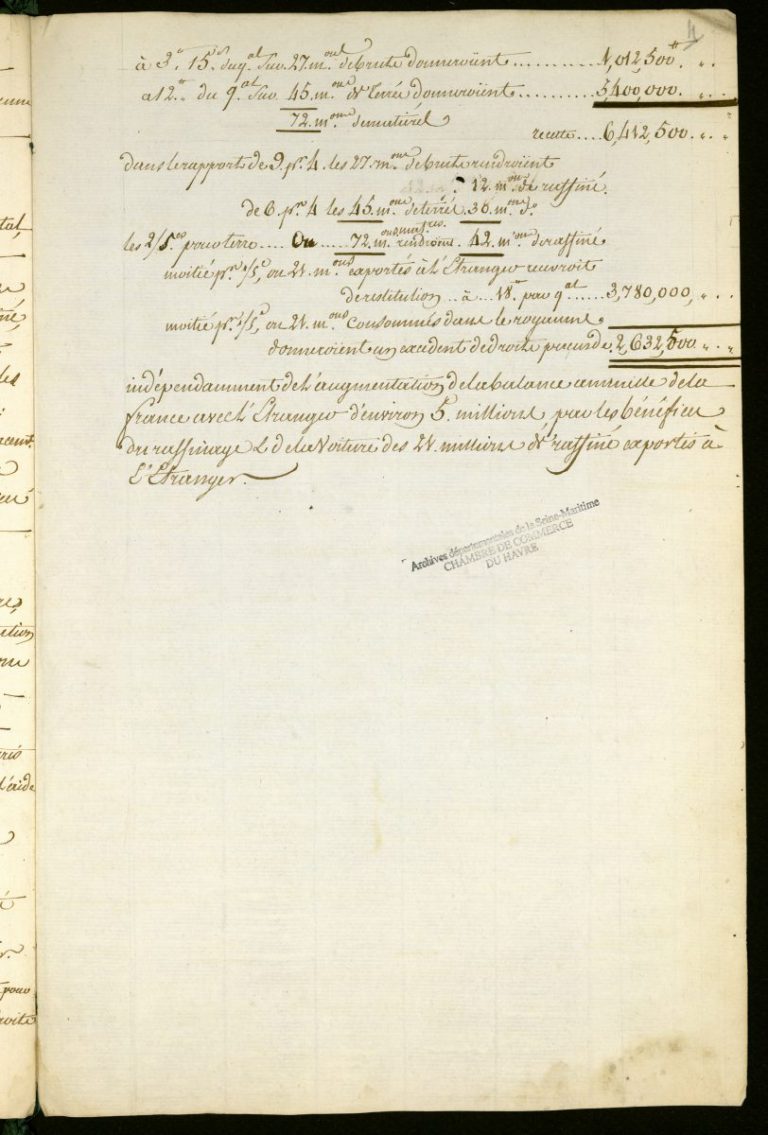 4
à 3# 15s du q.al sur 27. m.ons de brute donneroient ............ 1,012,500# " "
a 12# " du q.al sur 45. m.ons de terrée donneroient ............ 5,400,000. " "
72. m.ons de matiere
recette .... 6,412,500. " "
dans le rapport de 9. pr. 4. les 27. m.ons de brute rendroient
12. m.ons de raffiné.
de 6. pr. 4 les 45. m.ons de terré 30. m.ons do.
les 2/5.es pour terre .... Ou ..... 72. m.ons rendroient. 42. m.ons de raffiné
moitié pr. 1/5.e, ou 21. m.ons exportés à L'Etranger
de restitution .. à ... 18# par q.al ...... 3,780,000, " "
moitié pr. 1/5, ou 21. m.ons Consommés dans le royaume
donneroient un excédent de droits de 2,632,500 " "
indépendamment de L'augmentation de la balance annuelle de la
france avec L'Etranger d'environ 5. millions par les bénéfices
du raffinage & de la Voiture des 21. millions de raffiné exportés à
L'Etranger.
Archives départementales de la Seine-Maritime
CHAMBRE DE COMMERCE
DU HAVRE